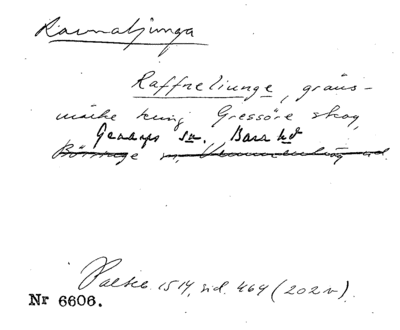 Ravnatjunga
Raffneliunge, gräns-
märke kring Gressöre skog,
Genarps sn. Bara hd
Börringe sn, Vemmenhög hd.
Palteb. 1514, sid. 464 (202 v).
Nr 6606.